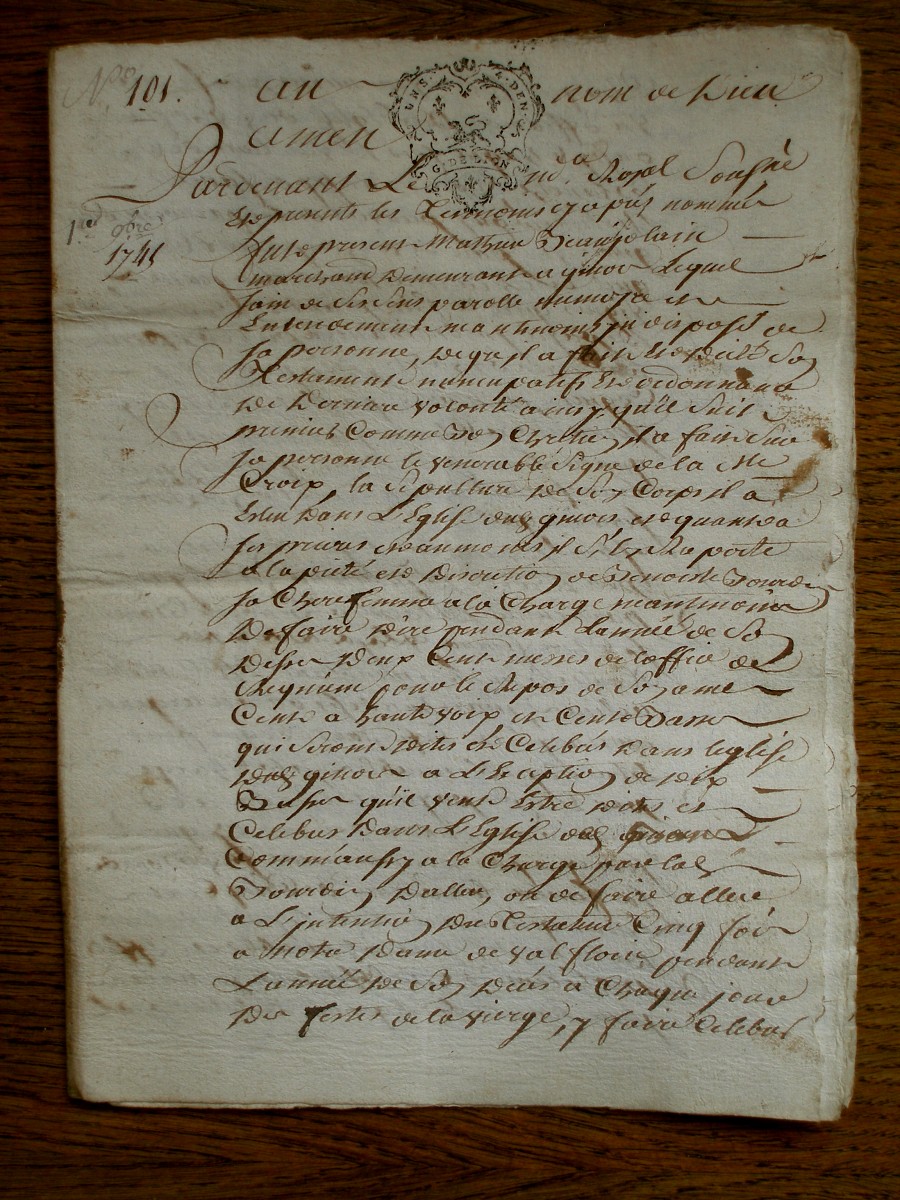 N.° 101. au nom de Dieu
amen
UN S. 4. DEN.
G. DE LION
Pardevant Le no.re Royal Sousné
Et presents les Temoins cy apres nommés
1.er 9bre 1745
fut present Mathieu Beaujolain
marchand Demeurant a ginoux Lequel
sain de ses sens parolle memoja et
Entendement neantmoins jndisposé de
sa personne, De gré il a fait Et Dicté son
Testament nuncupatif Et ordonnance
De Derniere volonté ainsy qu'il suit
premier Comme bon Chretien il a fait sur
sa personne le venerable signe de la Ste
Croix, la sepulture De son Corps il à
Esleu Dans L'Eglise dud. ginoux et quant a
ses prieres et aumones il s'En Raporte
a la pieté et Discretion de Benoiste Bourdin
sa Chere femme a la Charge neantmoins
De faire Dire pendant L'année de son
Deces Deux Cent messes de l'office de
Requiem pour le Repos de son ame
Cent a haute voix et Cent Basse
qui seront Dites et Celebrés Dans leglise
Dud. ginoux a L'Exception de Dix
Basses qu'il veut Estre Dites et
Celebrés Dans L'Eglise de
Comme aussy a la Charge par lad.
Bourdin D'aller, ou de faire aller
a L'jntention Du Testateur Cinq fois
a Notre Dame de val fleurie pendant
L'année De son Deces à Chaque jour
Des festes de la vierge, y faire Celebrer